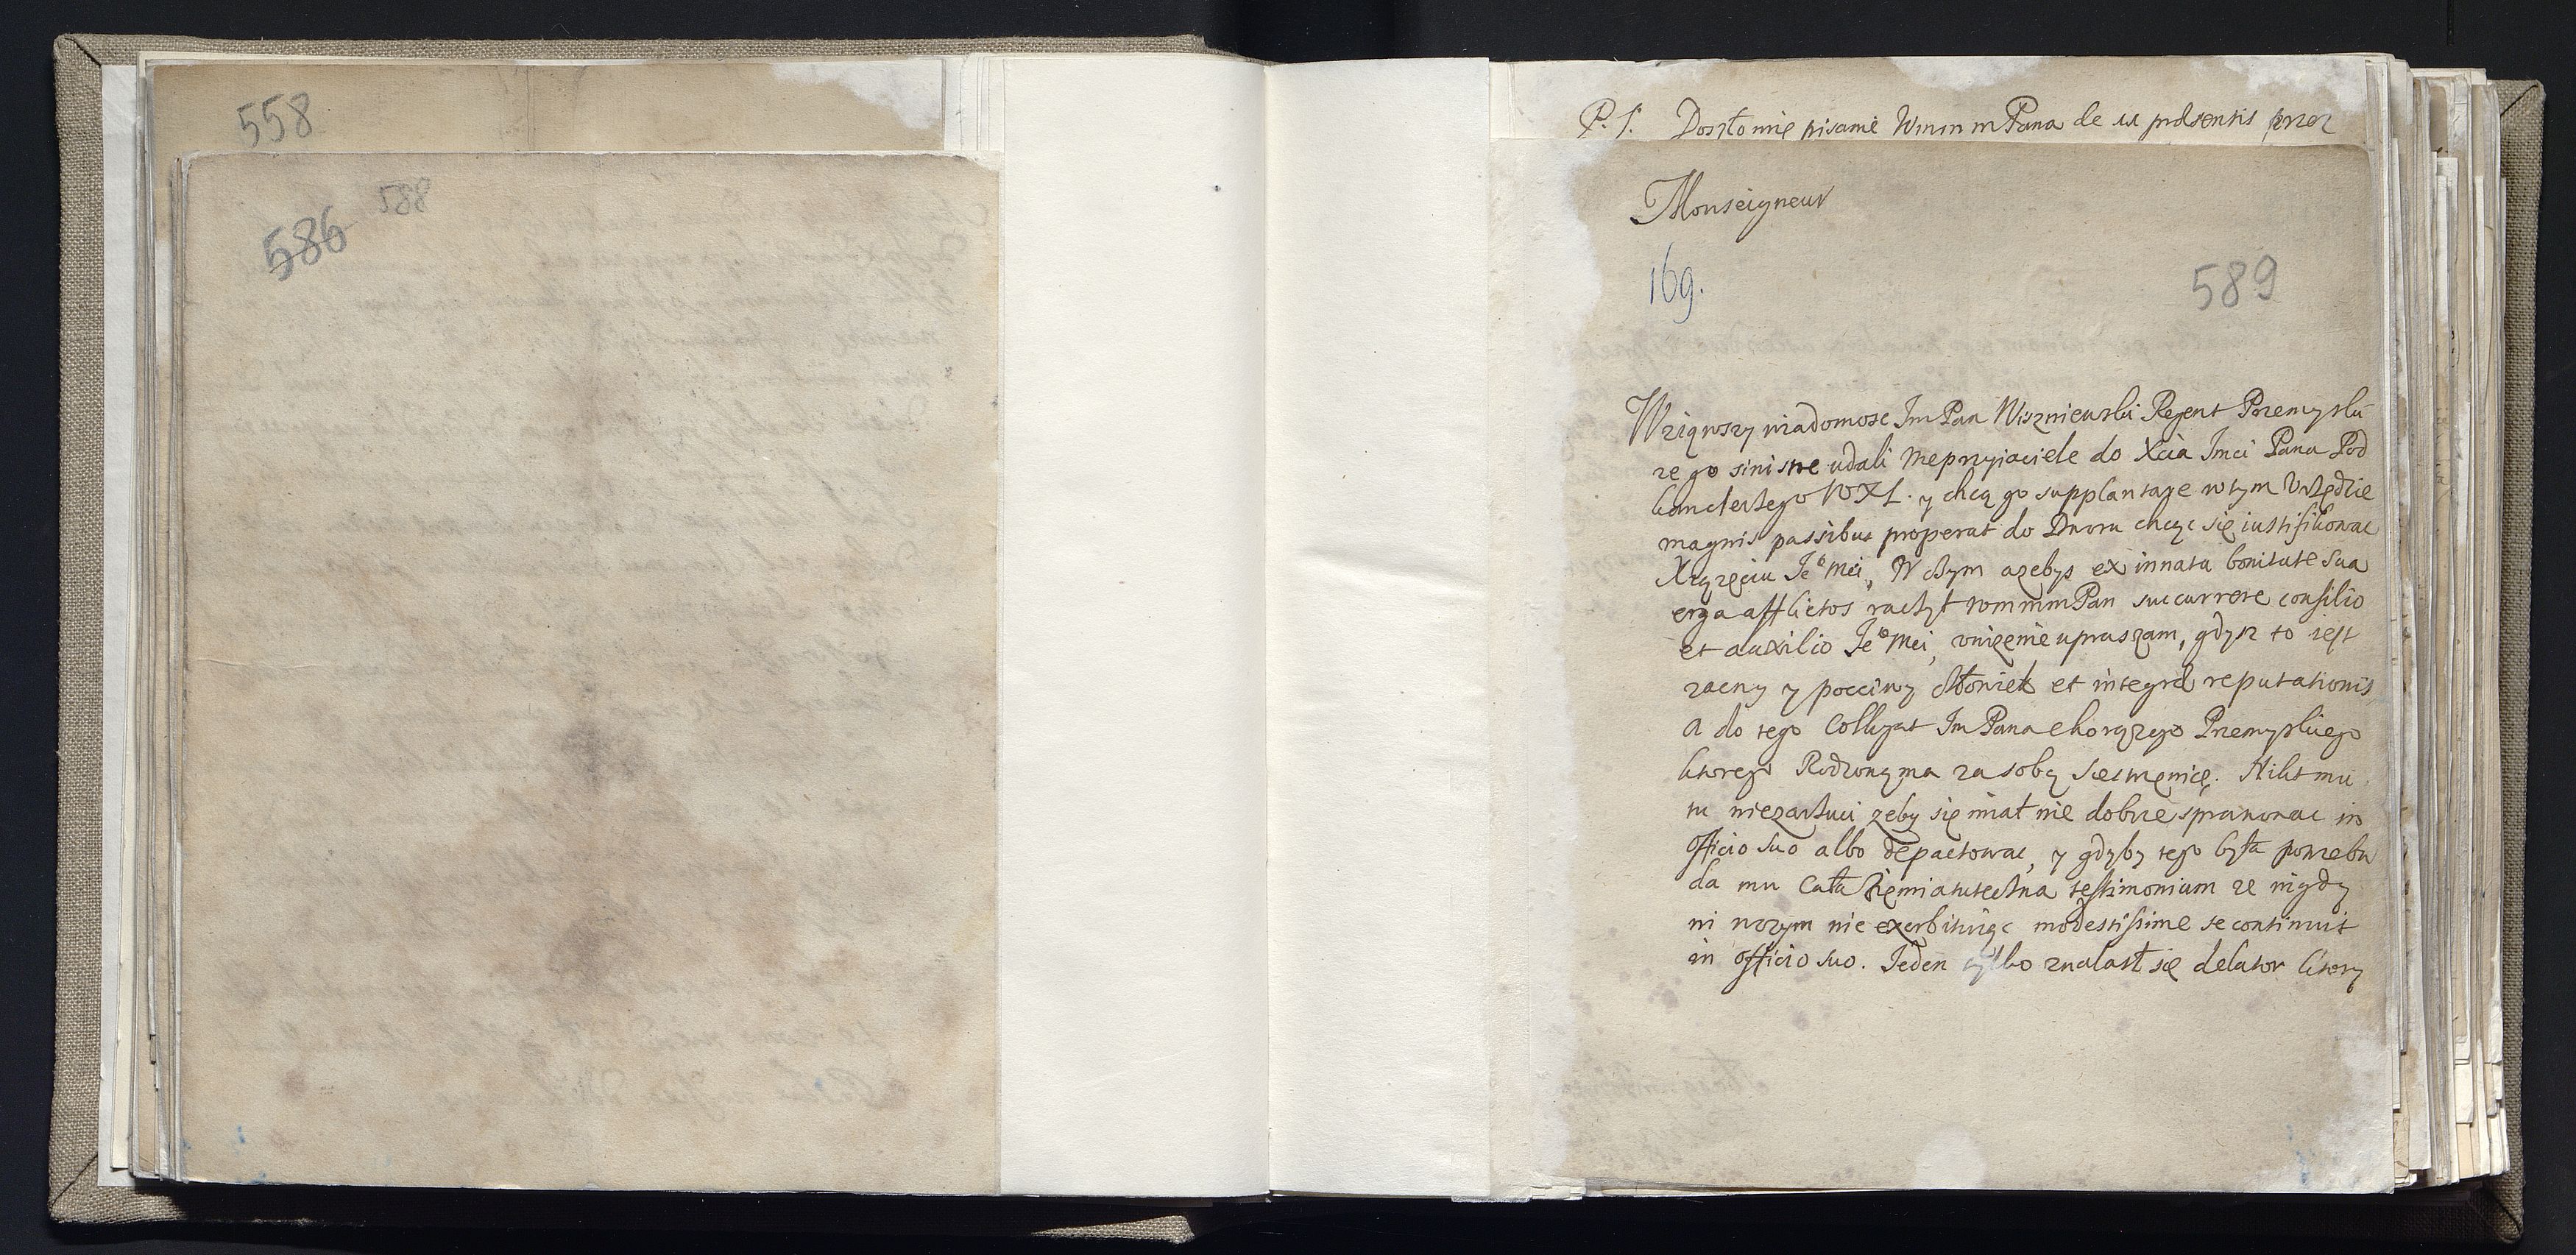 558
586 588
P. S. Doszło mię pisanie Wmm m Pana de presentis przez
Monseigneur
169.
589
Wziąwszy wiadomosc Im Pan Wiszniewski Regent Przemyski
ze go sinistre udali nieprzyiaciele do Xcia Imci Pana Pod
kanclerzego WXL. y chcą go supplantare w tym Urzędzie
magnis passibus properat do Dworu chcąc się iustifikowac
Xiązęciu Je°Mci, W czym azebys ex innata bonitate sua
erga afflictos raczył wmmm Pan succurrere consilio
et auxilio Je°Mci, unizenie upraszam, gdysz to iest
zacny y pocciwy człowiek et integræ reputationis
A do tego Colligat Im Pana chorązego Przemyskiego
ktorego Rodzoną ma za sobą siestrzenicę. Nikt mu
tu niezarzuci zeby się miał nie dobrze sprawowac in
officio suo albo depactowac, y gdyby tego była potrzeba
da mu Cała Ziemia tuteczna testimonium ze nigdy
ni wczym nie exorbituiąc modestissime se continuit
in officio suo. Ieden tylko znalast się delator ktory